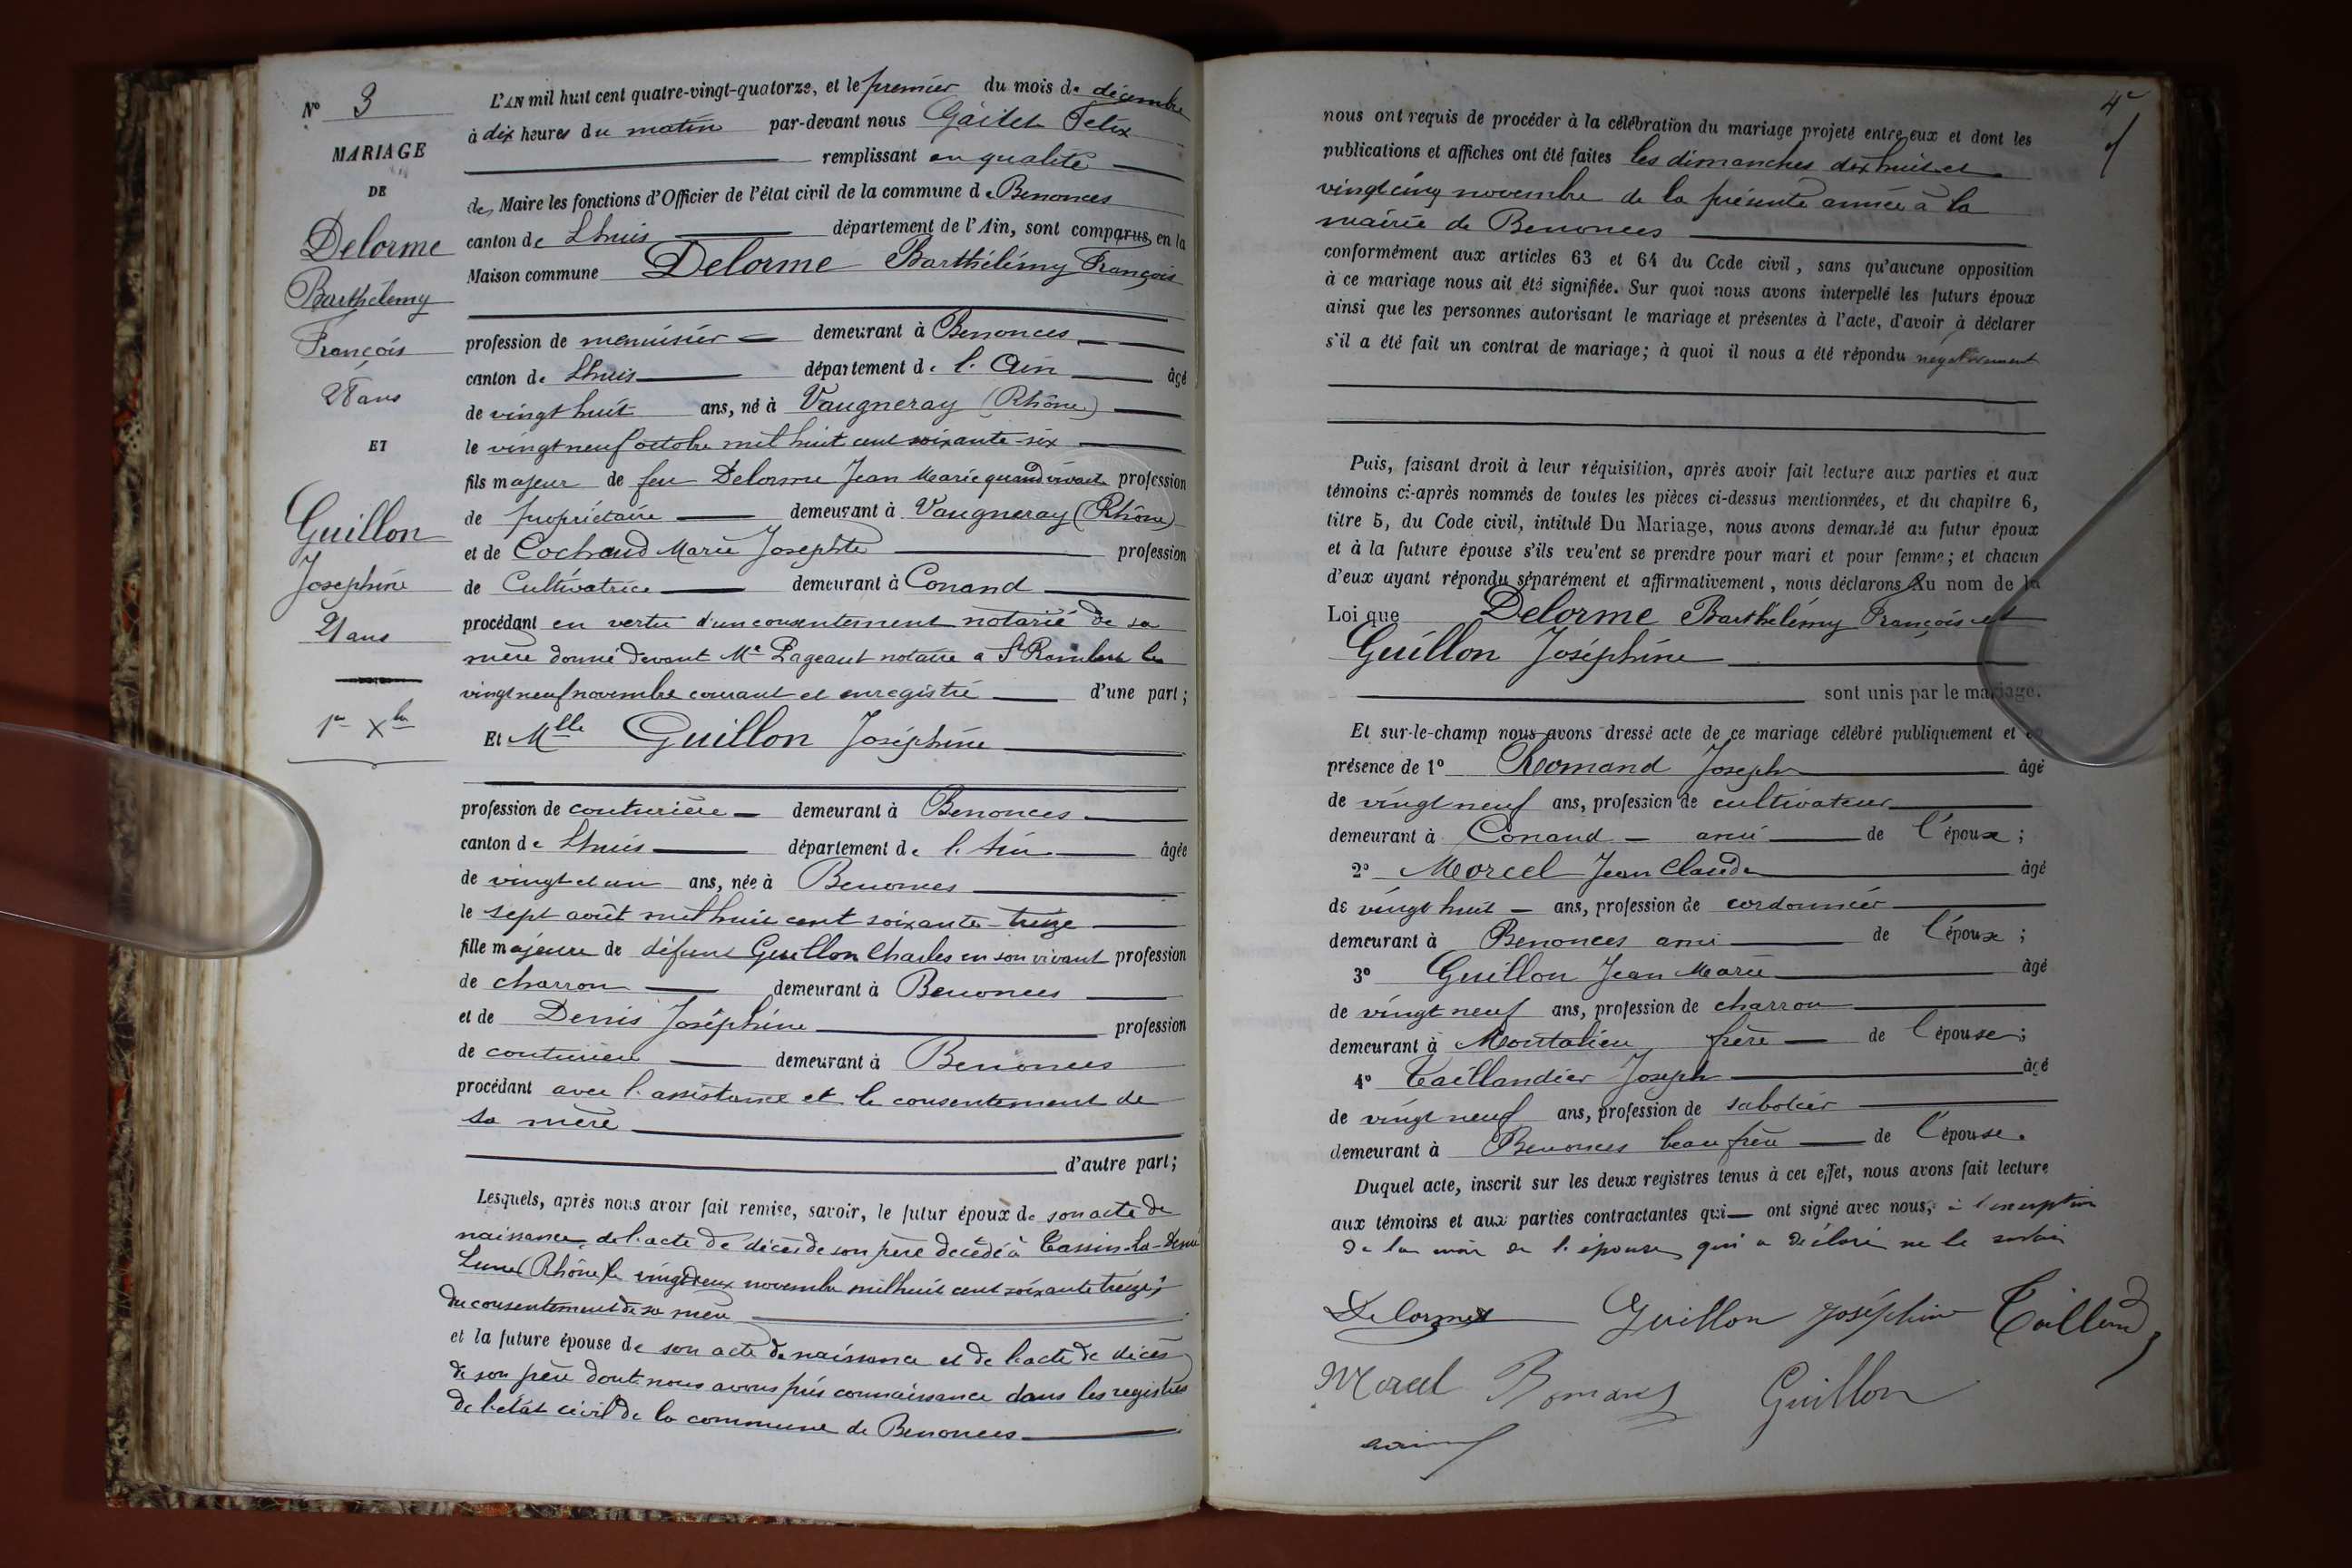 N° 3
MARIAGE
DE
Delorme
Barthélemy
François
28 ans
ET
Guillon
Josephine
21 ans
1er Xbre
L'AN mil huit cent quatre-vingt-quatorze, et le premier du mois de décembre
à dix heures du matin par-devant nous Gaillet Félix
remplissant en qualité
de Maire les fonctions d'Officier de l'état civil de la commune de Benonces
canton de Lhuis département de l'Ain, sont comparus en la
Maison commune Delorme Barthélémy François
profession de menuisier demeurant à Benonces
canton de Lhuis département de l'Ain âgé
de vingt huit ans, né à Vaugneray (Rhône)
le vingt neuf octobre mil huit cent soixante-six
fils majeur de feu Delorme Jean Marie quand vivait profession
de propriétaire demeurant à Vaugneray (Rhône)
et de Cochaud Marie Josephte profession
de Cultivatrice demeurant à Conand
procédant en vertu d'un consentement notarié de sa
mère donné devant Me Pageaut notaire à St Rambert le
vingt neuf novembre courant et enregistré d'une part ;
Et Mlle Guillon Joséphine
profession de couturière demeurant à Benonces
canton de Lhuis département de l'Ain âgée
de vingt et un ans, née à Benonces
le sept août mil huit cent soixante-treize
fille majeure de défunt Guillon Charles en son vivant profession
de charron demeurant à Benonces
et de Denis Joséphine profession
de couturière demeurant à Benonces
procédant avec l'assistance et le consentement de
sa mère
d'autre part ;
Lesquels, après nous avoir fait remise, savoir, le futur époux de son acte de
naissance, de l'acte de décès de son père décédé à Tassin-la-Demi
Lune (Rhône) le vingt deux novembre mil huit cent soixante treize ;
du consentement de sa mère
et la future épouse de son acte de naissance et de l'acte de décès
de son père dont nous avons pris connaissance dans les registres
de l'état civil de la commune de Benonces
4e
nous ont requis de procéder à la célébration du mariage projeté entre eux et dont les
publications et affiches ont été faites les dimanches dix huit et
vingt cinq novembre de la présente année à la
mairie de Benonces
conformément aux articles 63 et 64 du Code civil, sans qu'aucune opposition
à ce mariage nous ait été signifiée. Sur quoi nous avons interpellé les futurs époux
ainsi que les personnes autorisant le mariage et présentes à l'acte, d'avoir à déclarer
s'il a été fait un contrat de mariage ; à quoi il nous a été répondu negativement
Puis, faisant droit à leur réquisition, après avoir fait lecture aux parties et aux
témoins ci-après nommés de toutes les pièces ci-dessus mentionnées, et du chapitre 6,
titre 5, du Code civil, intitulé Du Mariage, nous avons demandé au futur époux
et à la future épouse s'ils veulent se prendre pour mari et pour femme ; et chacun
d'eux ayant répondu séparément et affirmativement, nous déclarons Au nom de la
Loi que Delorme Barthélémy François et
Guillon Joséphine
sont unis par le mariage.
Et sur-le-champ nous avons dressé acte de ce mariage célébré publiquement et en
présence de 1° Romand Joseph âgé
de vingt neuf ans, profession de cultivateur
demeurant à Conand - ami de l'époux ;
2° Morcel Jean Claude âgé
de vingt huit ans, profession de cordonnier
demeurant à Benonces ami de l'époux ;
3° Guillon Jean Marie âgé
de vingt neuf ans, profession de charron
demeurant à Montalieu frère de l'épouse ;
4° Taillandier Joseph âgé
de vingt neuf ans, profession de sabotier
demeurant à Benonces beau frère de l'épouse.
Duquel acte, inscrit sur les deux registres tenus à cet effet, nous avons fait lecture
aux témoins et aux parties contractantes qui ont signé avec nous, à l'exception
de la mère de l'épouse, qui a déclaré ne le savoir
Delorme Guillon Joséphine Tailland
Morcel Romand Guillon